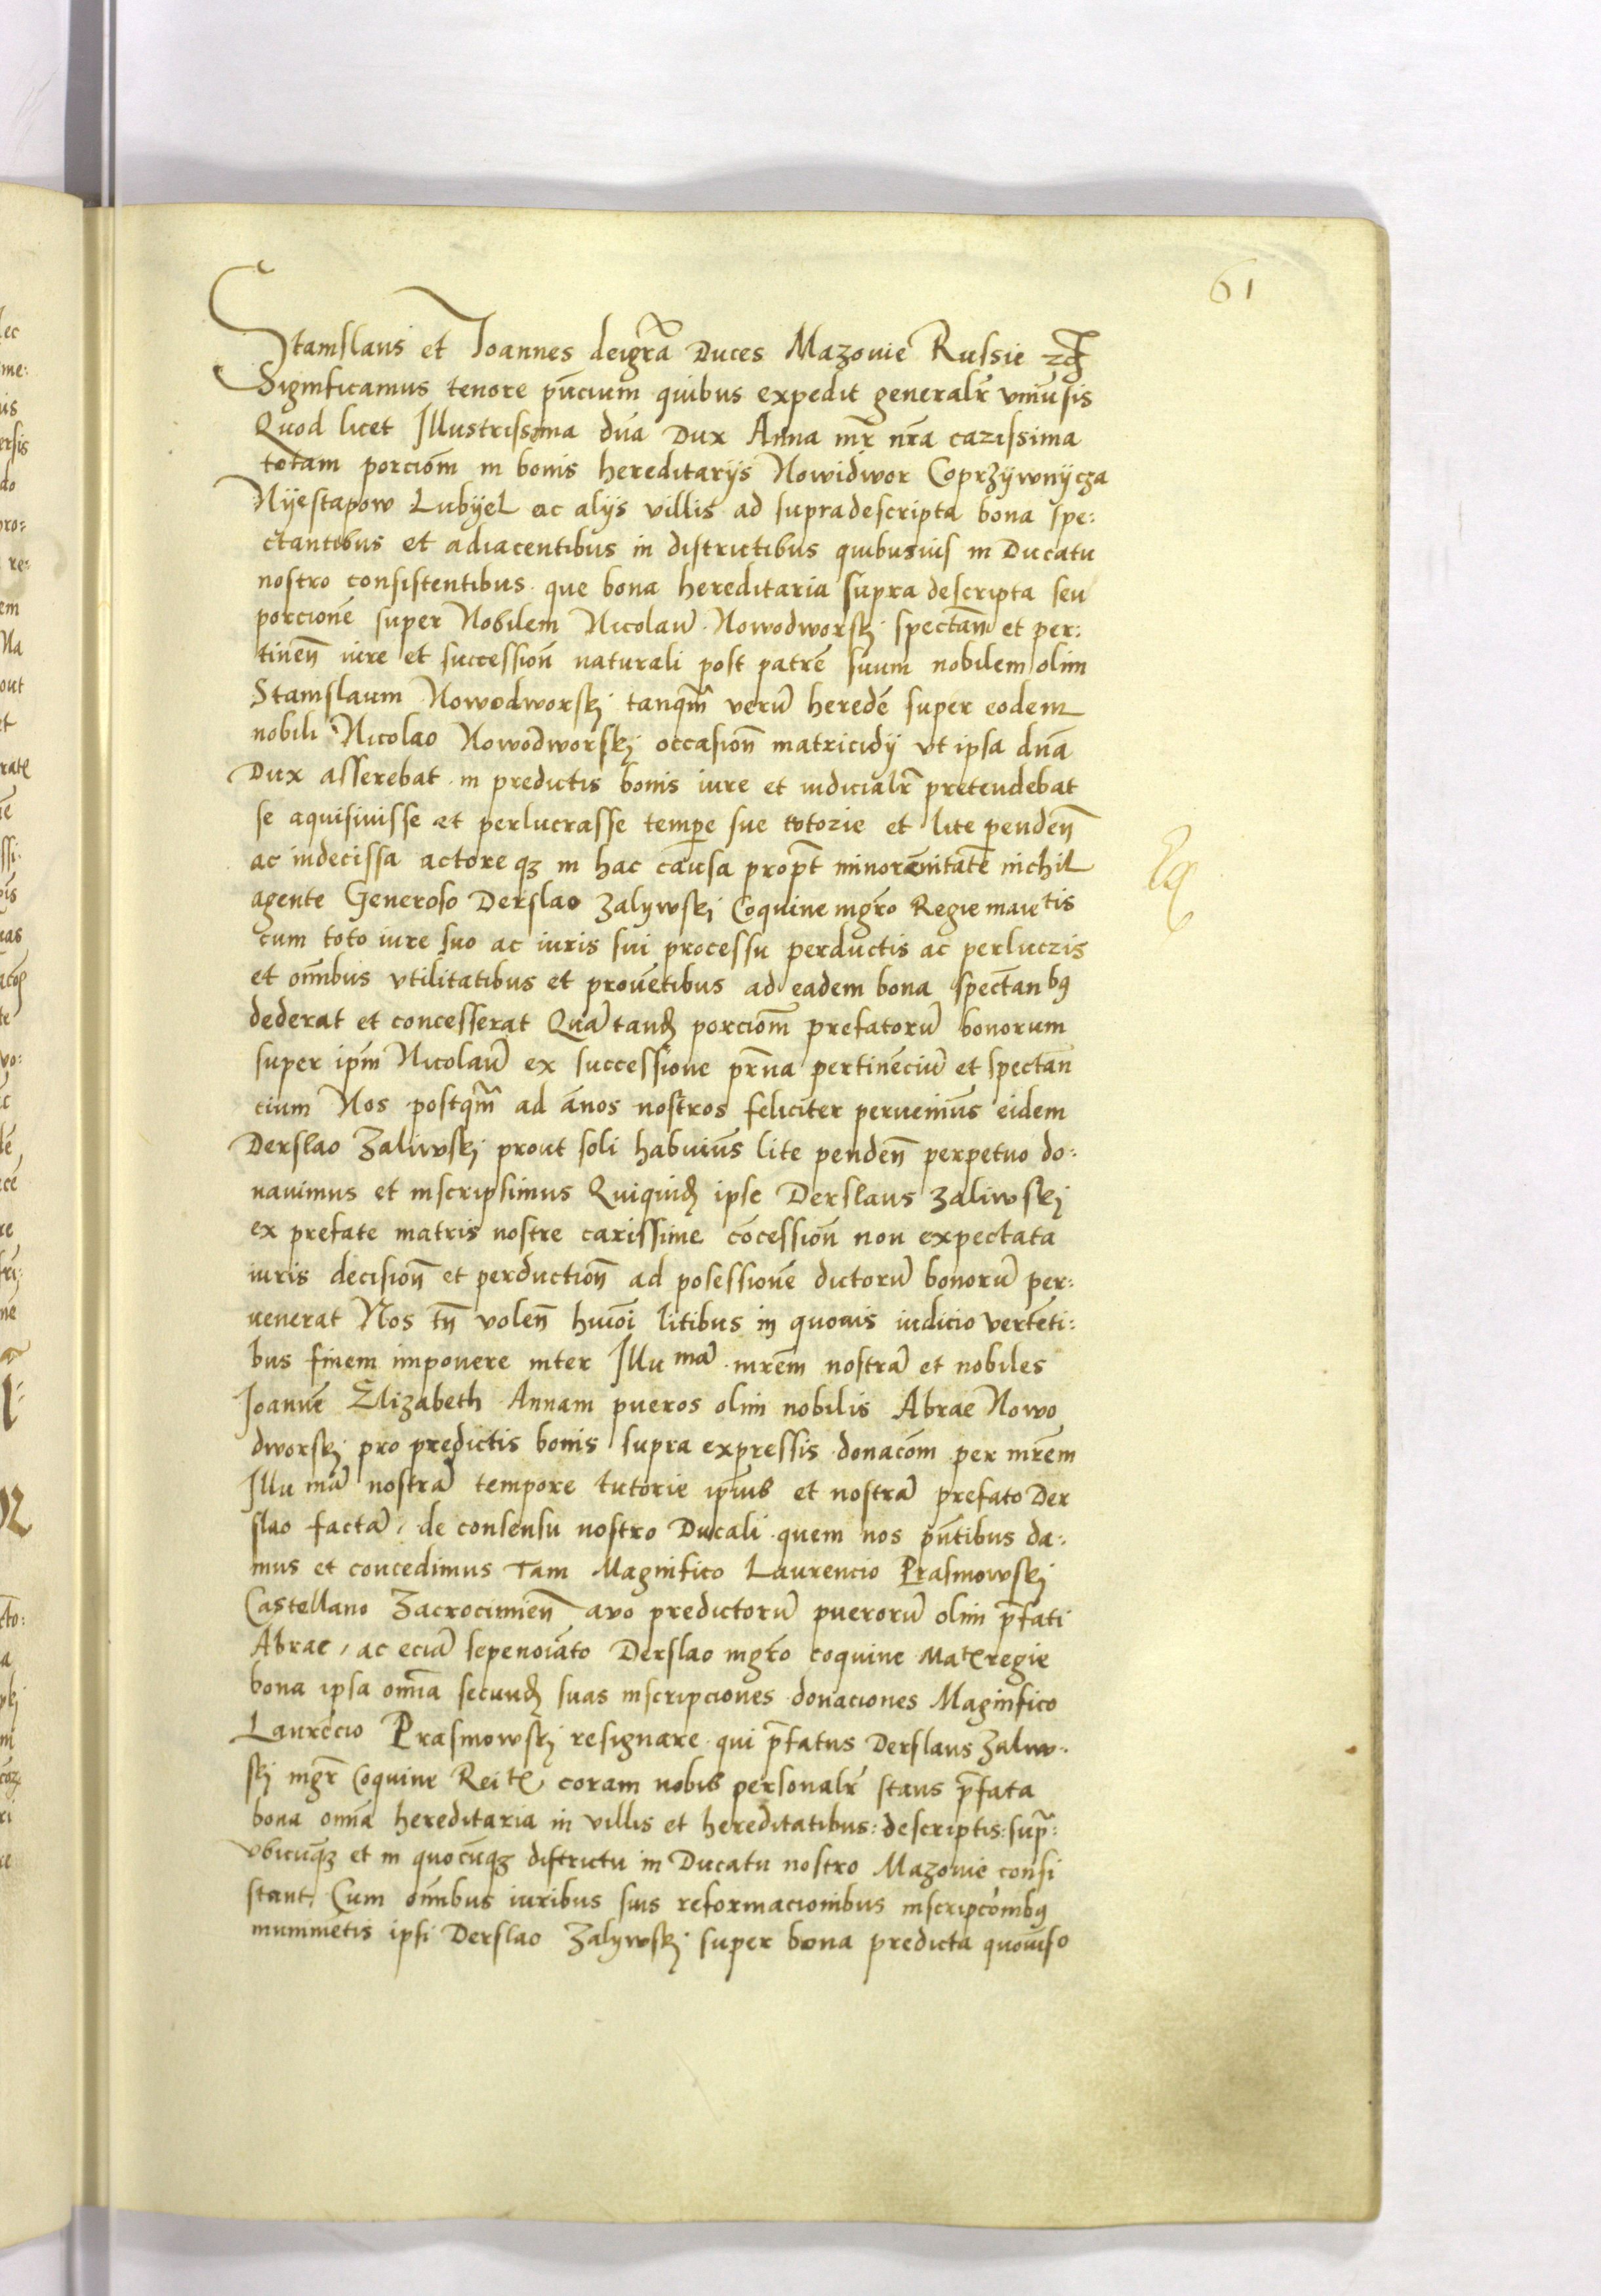 61
Stanislaus et Joannes deigr̃a Duces Mazouie Russie zc̃
Significamus tenore pñcium quibus expedit generalr̃ vniũsis
Quod licet Illustrissima dña Dux Anna mr̃ nr̃a carissima
totam porcionẽ in bonis hereditarijs Nowidwor Coprzÿwnÿcza
Nÿestapow Lubÿel ac alÿs villis ad supradescripta bona spe:
ctantibus et adiacentibus in districtibus quibusuis in Ducatu
nostro consistentibus que bona hereditaria supra descripta seu
porcionẽ super Nobilem Nicolaũ Nowodworskj spectañ et per:
tineñ iure et successioñ naturali post patrẽ suum nobilem olim
Stanislaum Nowodworskj tanqm̃ verũ heredẽ super eodem
nobili Nicolao Nowodworskj occasioñ matricidÿ vt ipsa dña
Dux asserebat in predictis bonis iure et iudicialr̃ pretendebat
se aquisiuisse et perlucrasse tempe sue tutorie et lite pendeñ
ac indecissa actore qz in hac causa propt̃ minorẽnitatẽ nichil
agente Generoso Derslao Zalywskj Coquine mgr̃o Regie maietis
cum toto iure suo ac iuris sui processu perductis ac perlucris
et om̃ibus vtilitatibus et prouẽtibus ad eadem bona spectañbꝯ
dederat et concesserat Quã tandẽ porcionẽ prefatorũ bonorum
super ip̃m Nicolaũ ex successione pr̃na pertinẽciũ et spectan
cium Nos postqm̃ ad ãnos nostros feliciter peruenim̃us eidem
Derslao Zaliwskj prout soli habuim̃us lite pendeñ perpetuo do:
nauimus et inscripsimus Quiquidẽ ipse Derslaus Zaliwskj
ex prefate matris nostre carissime cõcessioñ non expectata
iuris decisioñ et perductioñ ad posessionẽ dictorũ bonorũ per:
uenerat Nos tñ voleñ huiõi litibus in quouis iudicio vertẽti:
bus finem imponere inter Illu mã mr̃em nostrã et nobiles
Joannẽ Elizabeth Annam pueros olim nobilis Abrae Nowo
dworskj pro predictis bonis supra expressis donacõm per mr̃em
Illu mã nostrã tempore tutorie ip̃ius et nostrã prefato Der
slao factã, de consensu nostro Ducali quem nos pñtibus da:
mus et concedimus Tam Magnifico Laurencio Prasmowskj
Castellano Zacrocimieñ auo predictorũ puerorũ olim p̃fati
Abrae, ac eciã sepenoiãto Derslao mgr̃o coquine Matꝭ regie
bona ipsa om̃ia secundẽ suas inscripciones donaciones Magnifico
Laurẽcio Prasmowskj resignare qui p̃fatus Derslaus Zaliw:
skj mgr̃ Coquine Rei tꝭ coram nobis personalr̃ stans p̃fata
bona om̃ia hereditaria in villis et hereditatibus: descriptis: supr̃:
vbicũqz et in quocũqz districtu in Ducatu nostro Mazouie consi
stant, Cum om̃ibus iuribus suis reformacionibus inscripcõnibꝯ
munimẽtis ipsi Derslao Zalywskj super bona predicta quouiso